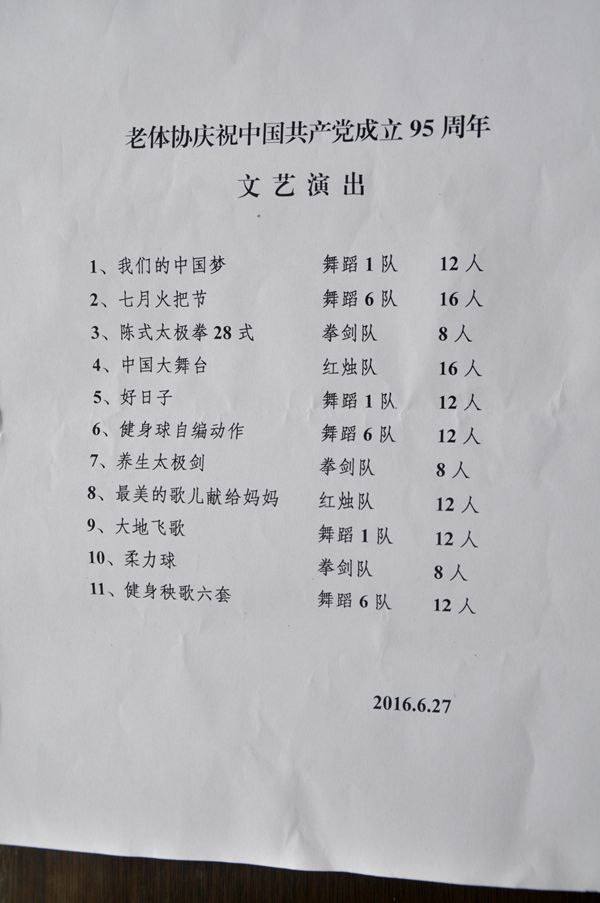 老体协庆祝中国共产党成立 95 周年
文艺演出
1、我们的中国梦 舞蹈 1 队 12 人
2、七月火把节 舞蹈 6 队 16 人
3、陈式太极拳 28 式 拳剑队 8 人
4、中国大舞台 红烛队 16 人
5、好日子 舞蹈 1 队 12 人
6、健身球自编动作 舞蹈 6 队 12 人
7、养生太极剑 拳剑队 8 人
8、最美的歌儿献给妈妈 红烛队 12 人
9、大地飞歌 舞蹈 1 队 12 人
10、柔力球 拳剑队 8 人
11、健身秧歌六套 舞蹈 6 队 12 人
2016.6.27